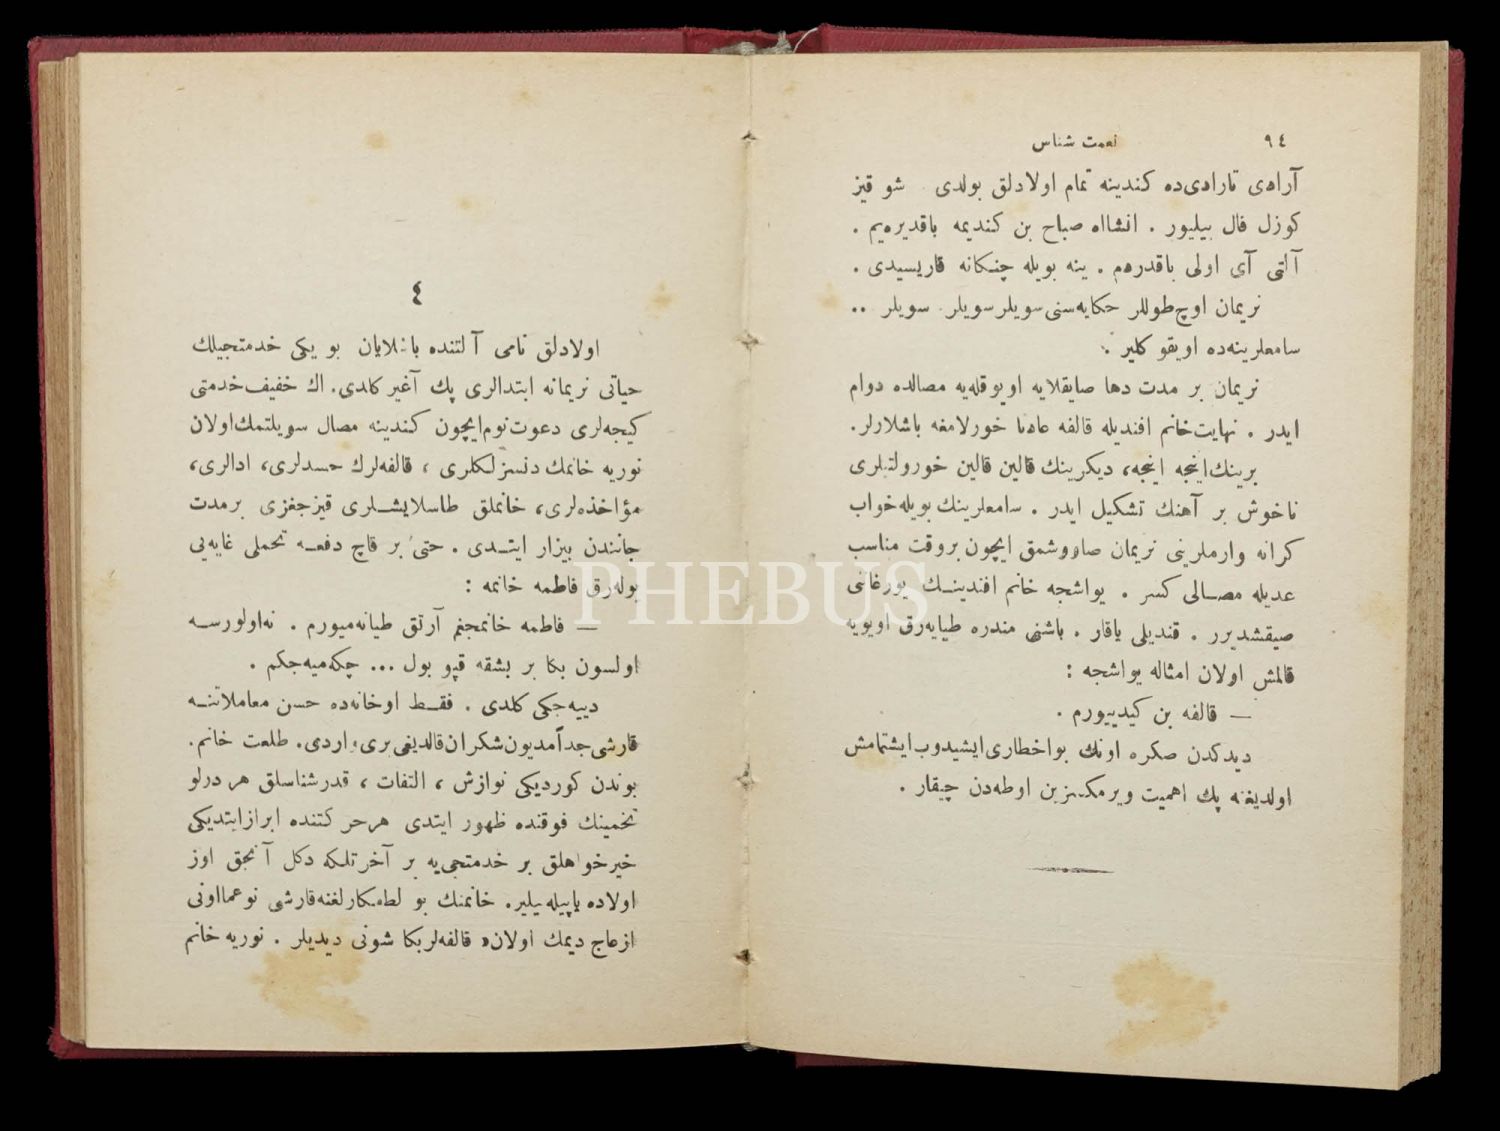 ٩٤
نعمت شناس
آرادی تارادی‌ده کندینه تمام اولادلق بولدی شو قیز
کوزل فال بیلیور . انشااه صباح بن کندیمه باقدیره‌یم .
آلتی آی اولی باقدردم . ینه بویله چنکانه قاریسیدی .
نریمان اوچ طوللر حکایه‌سنی سویلر سویلر . سویلر ..
سامعلرینه‌ده اویقو کلیر .
نریمان بر مدت دها صایقلایه اویوقله‌یه مصالده دوام
ایدر . نهایت خانم افندیله قالفه عادتا خورلامغه باشلارلر.
برینك اینجه اینجه، دیکرینك قالین قالین خورولتیلری
ناخوش بر آهنك تشکیل ایدر . سامعلرینك بویله خواب
کرانه وارملرینی نریمان صاووشمق ایچون بر وقت مناسب
عدیله مصالی کسر . یواشجه خانم افندینك یورغانی
صیقشدیرر . قندیلی یاقار . باشنی مندره طیایه‌رق اویویه
قالمش اولان امثاله یواشجه :
— قالفه بن کیدییورم .
دیدکدن صکره اونك بو اخطاری ایشیدوب ایشتمامش
اولدیغنه پك اهمیت ویرمکسزین اوطه‌دن چیقار .
٤
اولادلق نامی آلتنده باشلایان بو یکی خدمتجیلك
حیاتی نریمانه ابتدالری پك آغیر کلدی. اك خفیف خدمتی
کیجه‌لری دعوت نوم ایچون کندینه مصال سویلتمك اولان
نوریه خانمك دنسزلکلری ، قالفه‌لرك حسدلری، ادالری،
مؤاخذه‌لری، خانملق طاسلایشلری قیزجغزی بر مدت
جانندن بیزار ایتدی . حتی بر قاچ دفعه تحملی غایه‌یی
بوله‌رق فاطمه خانمه :
— فاطمه خانمجغم آرتق طیانه‌میورم . نه اولورسه
اولسون بکا بر بشقه قپو بول ... چکه‌میه‌جکم .
دییه‌جکی کلدی . فقط او خانه‌ده حسن معاملاتنه
قارشی جداً مدیون شکران قالدیغی بری واردی. طلعت خانم.
بوندن کوردیکی نوازش ، التفات ، قدرشناسلق هر درلو
تخمینك فوقنده ظهور ایتدی هر حرکتنده ابراز ایتدیکی
خیرخواهلق بر خدمتجی‌یه بر آخرتلکه دکل آنجق اوز
اولاده یاپیله‌بیلیر. خانمنك بو لطفکارلغنه قارشی نوعما اونی
ازعاج دیمك اولان « قالفه‌لر بکا شونی دیدیلر . نوریه خانم